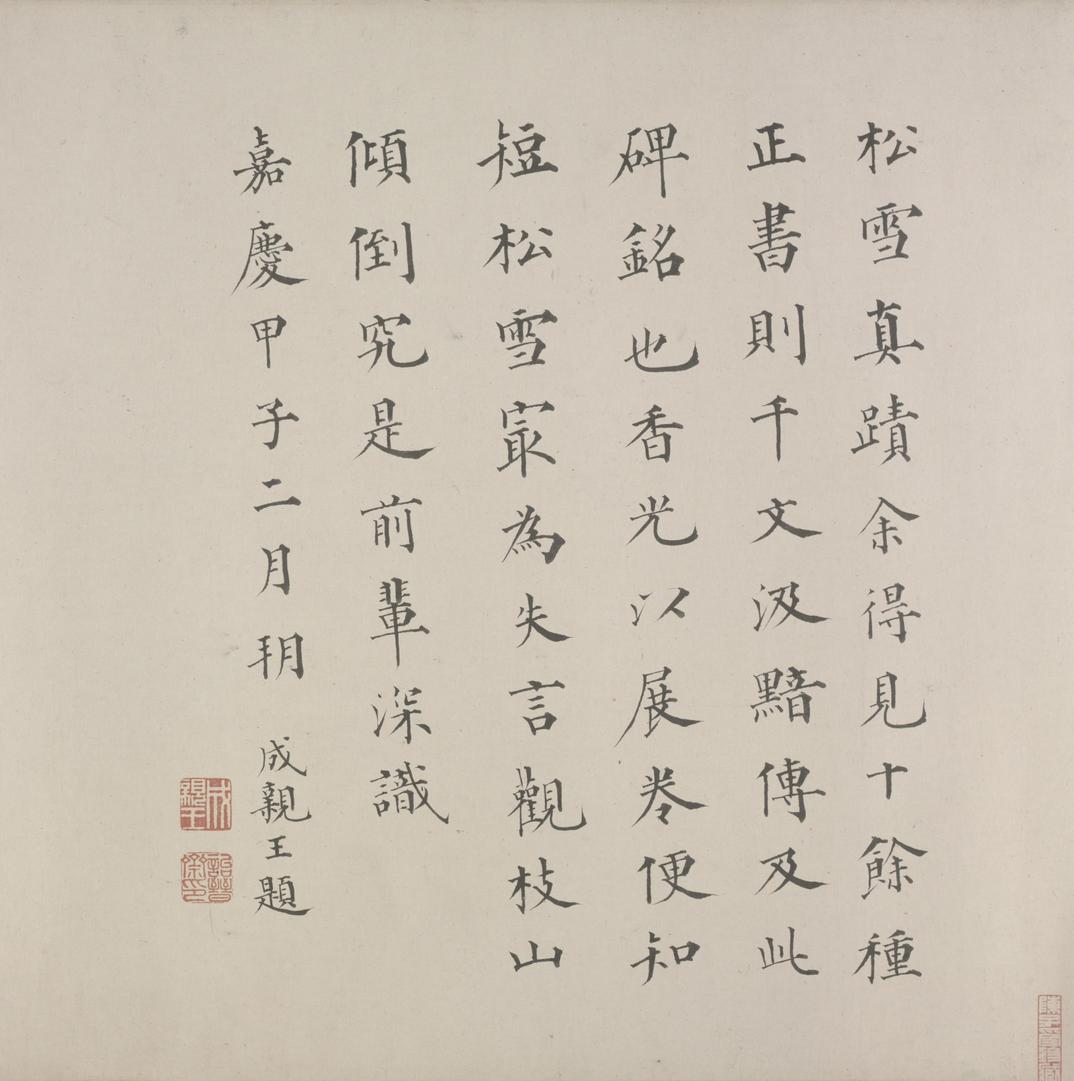 松雪真蹟余得見十餘種
正書則千文汲黯傳及此
碑銘也香光以展卷便知
短松雪冣為失言觀枝山
傾倒究是前輩深識
嘉慶甲子二月玥 成親王題
成親王
詒晉齋印